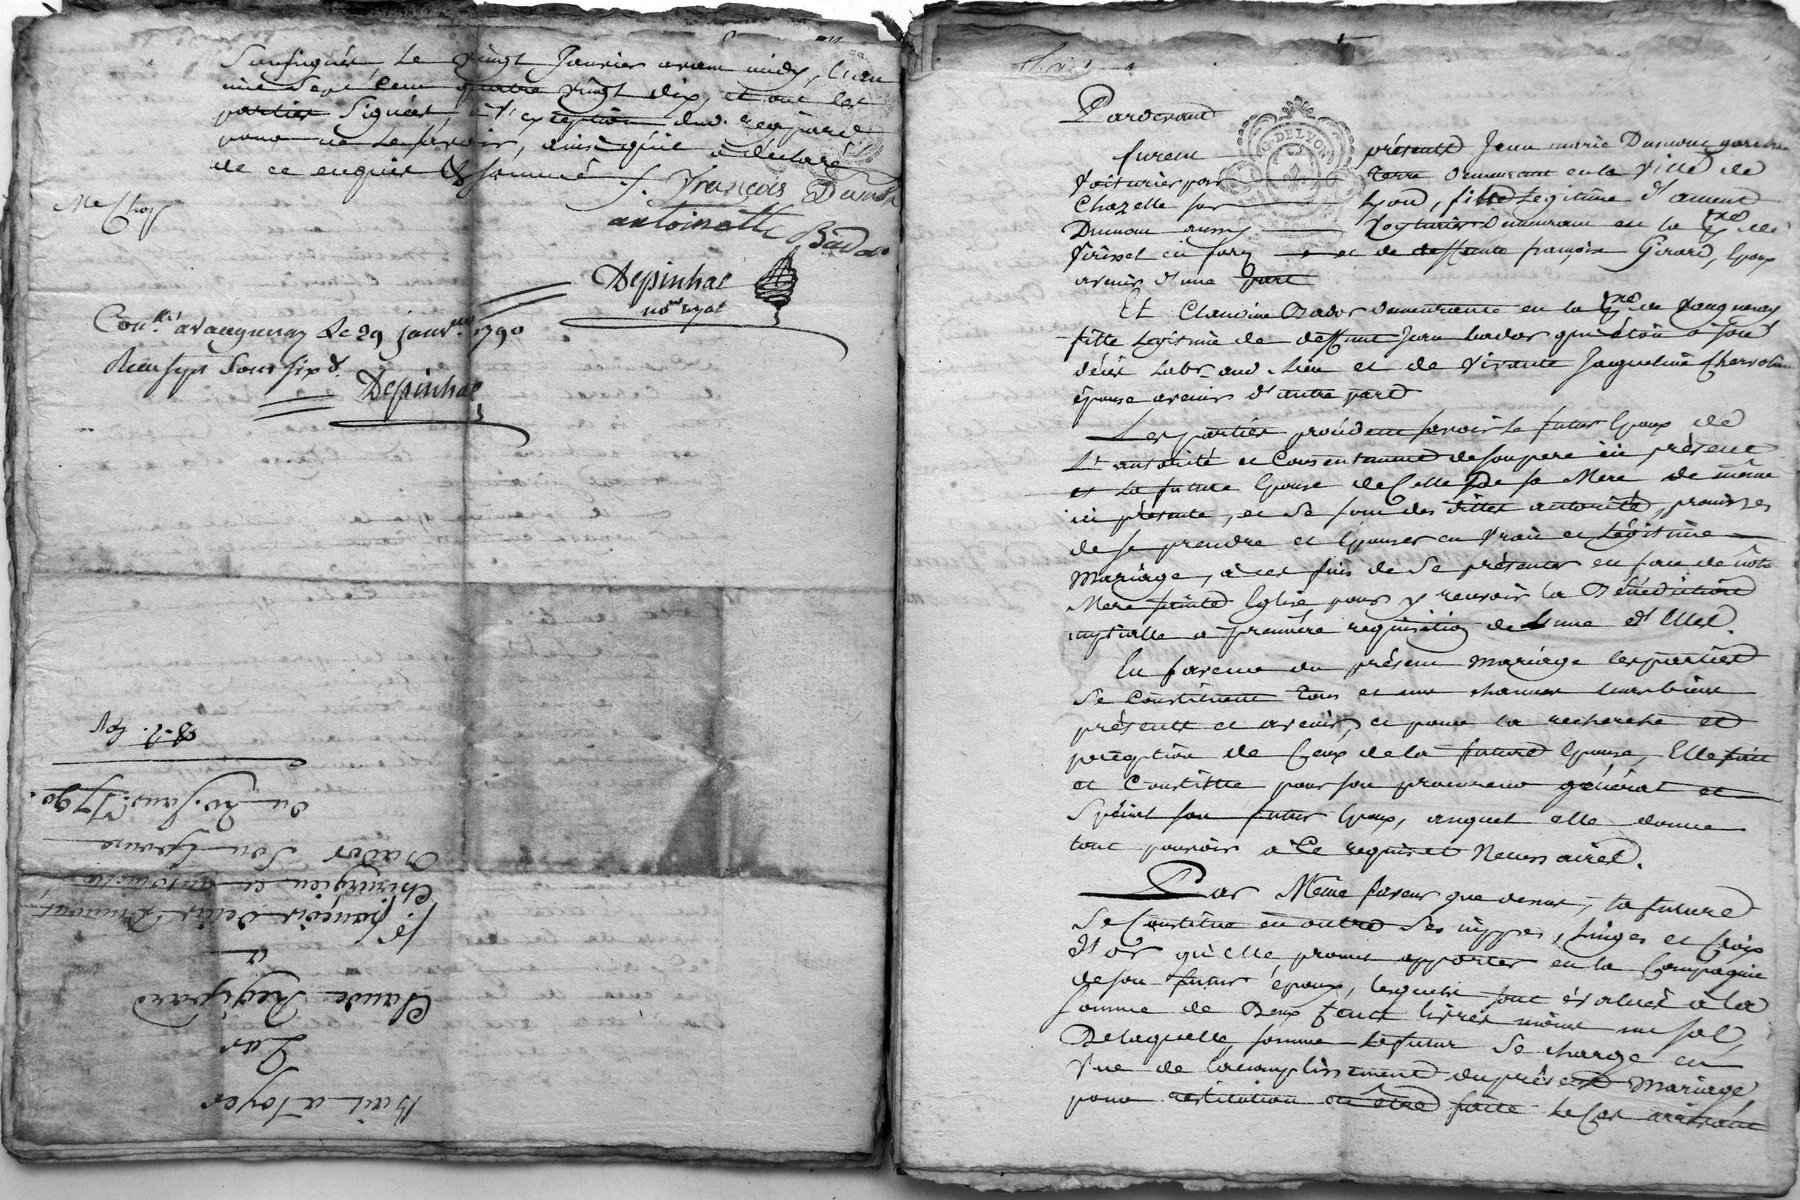 Soussignés, le vingt Janvier avant midy, l'an
mil sept cent quatre vingt dix, et ont les
parties signées, à l'exception dud. regipard
pour ne le savoir, ainsi qu'il a déclaré
de ce enquis & sommé /. françois Dumon
antoinette Bador
Depinhac
no.re royal
Con.lé a vaugneray le 29 janv. 1790
Reçu sept sous six d.
Depinhac
Bail a loyer
Par
Claude Regipard
a
S.r françois denis Dumont
Chirurgien et antoinette
Bador son épouse
du 20. Janv. 1790.
Pardevant
furent présents Jean marie Dumont garçon
Voiturier par terre demeurant en la Ville de
Chazelle sur Lyon, fils légitime d'
Dumon aussy Voiturier demeurant en la
Virisset en forez et de deffunte françoise Girard, époux
avenir d'une part
Et Claudine Bador demeurante en la de Vaugneray
fille légitime de deffunt Jean bador qui étoit à son
décès audt. lieu et de vivante Jacqueline
épouse avenir d'autre part
Les parties procédent savoir le futur époux de
l'autorité et consentement de son pere ici présent
et la future épouse de celle de sa Mere de même
ici présente, et se sont des dittes autorités, promis
de se prendre et épouser en vrai et légitime
Mariage, à ces fins de se présenter en face de nôtre
Mere sainte Eglise pour y recevoir la Bénédiction
nuptialle a première requisition de l'une d'Elles.
En faveur du présent mariage les parties
se constituent tous et un chacun leurs biens
présents et avenir, et pour la recherche et
perception de ceux de la future épouse, Elle fait
et Constitue pour son procureur général et
spécial son futur époux, auquel elle donne
tout pouvoir à ce requis et Nécessaire.
Par Même faveur que dessus, la future
se Constitue en outre ses nippes, linges et Croix
d'or qu'elle promet apporter en la Compagnie
de son futur époux, lesquels sont évalués à la
somme de Deux cent livres
De laquelle somme le futur se charge en
vue de l'accomplissement du présent Mariage
pour restitution en être faite le Cas arrivant